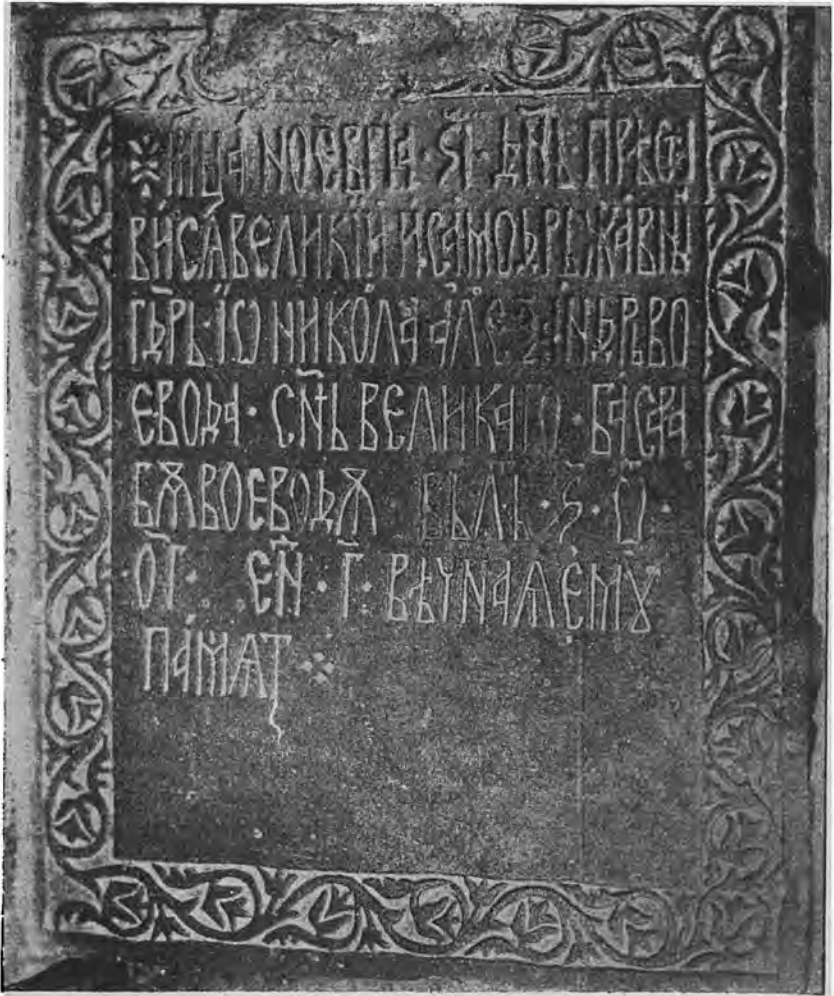 мц҃а ноеврїа · ѕ҃ї · дн҃ь прѣста
ви сѧ великїи и самодръжавны
гдⷭ҇рь · їѡ николаа алеѯандръ во
евода · сн҃ь великаго · басара
бѫ воеводѫ в лѣ · ѕ҃ · ѡ҃ ·
о҃г · ен҃ · г҃ · вѣчнаѧ емꙋ
памѧт